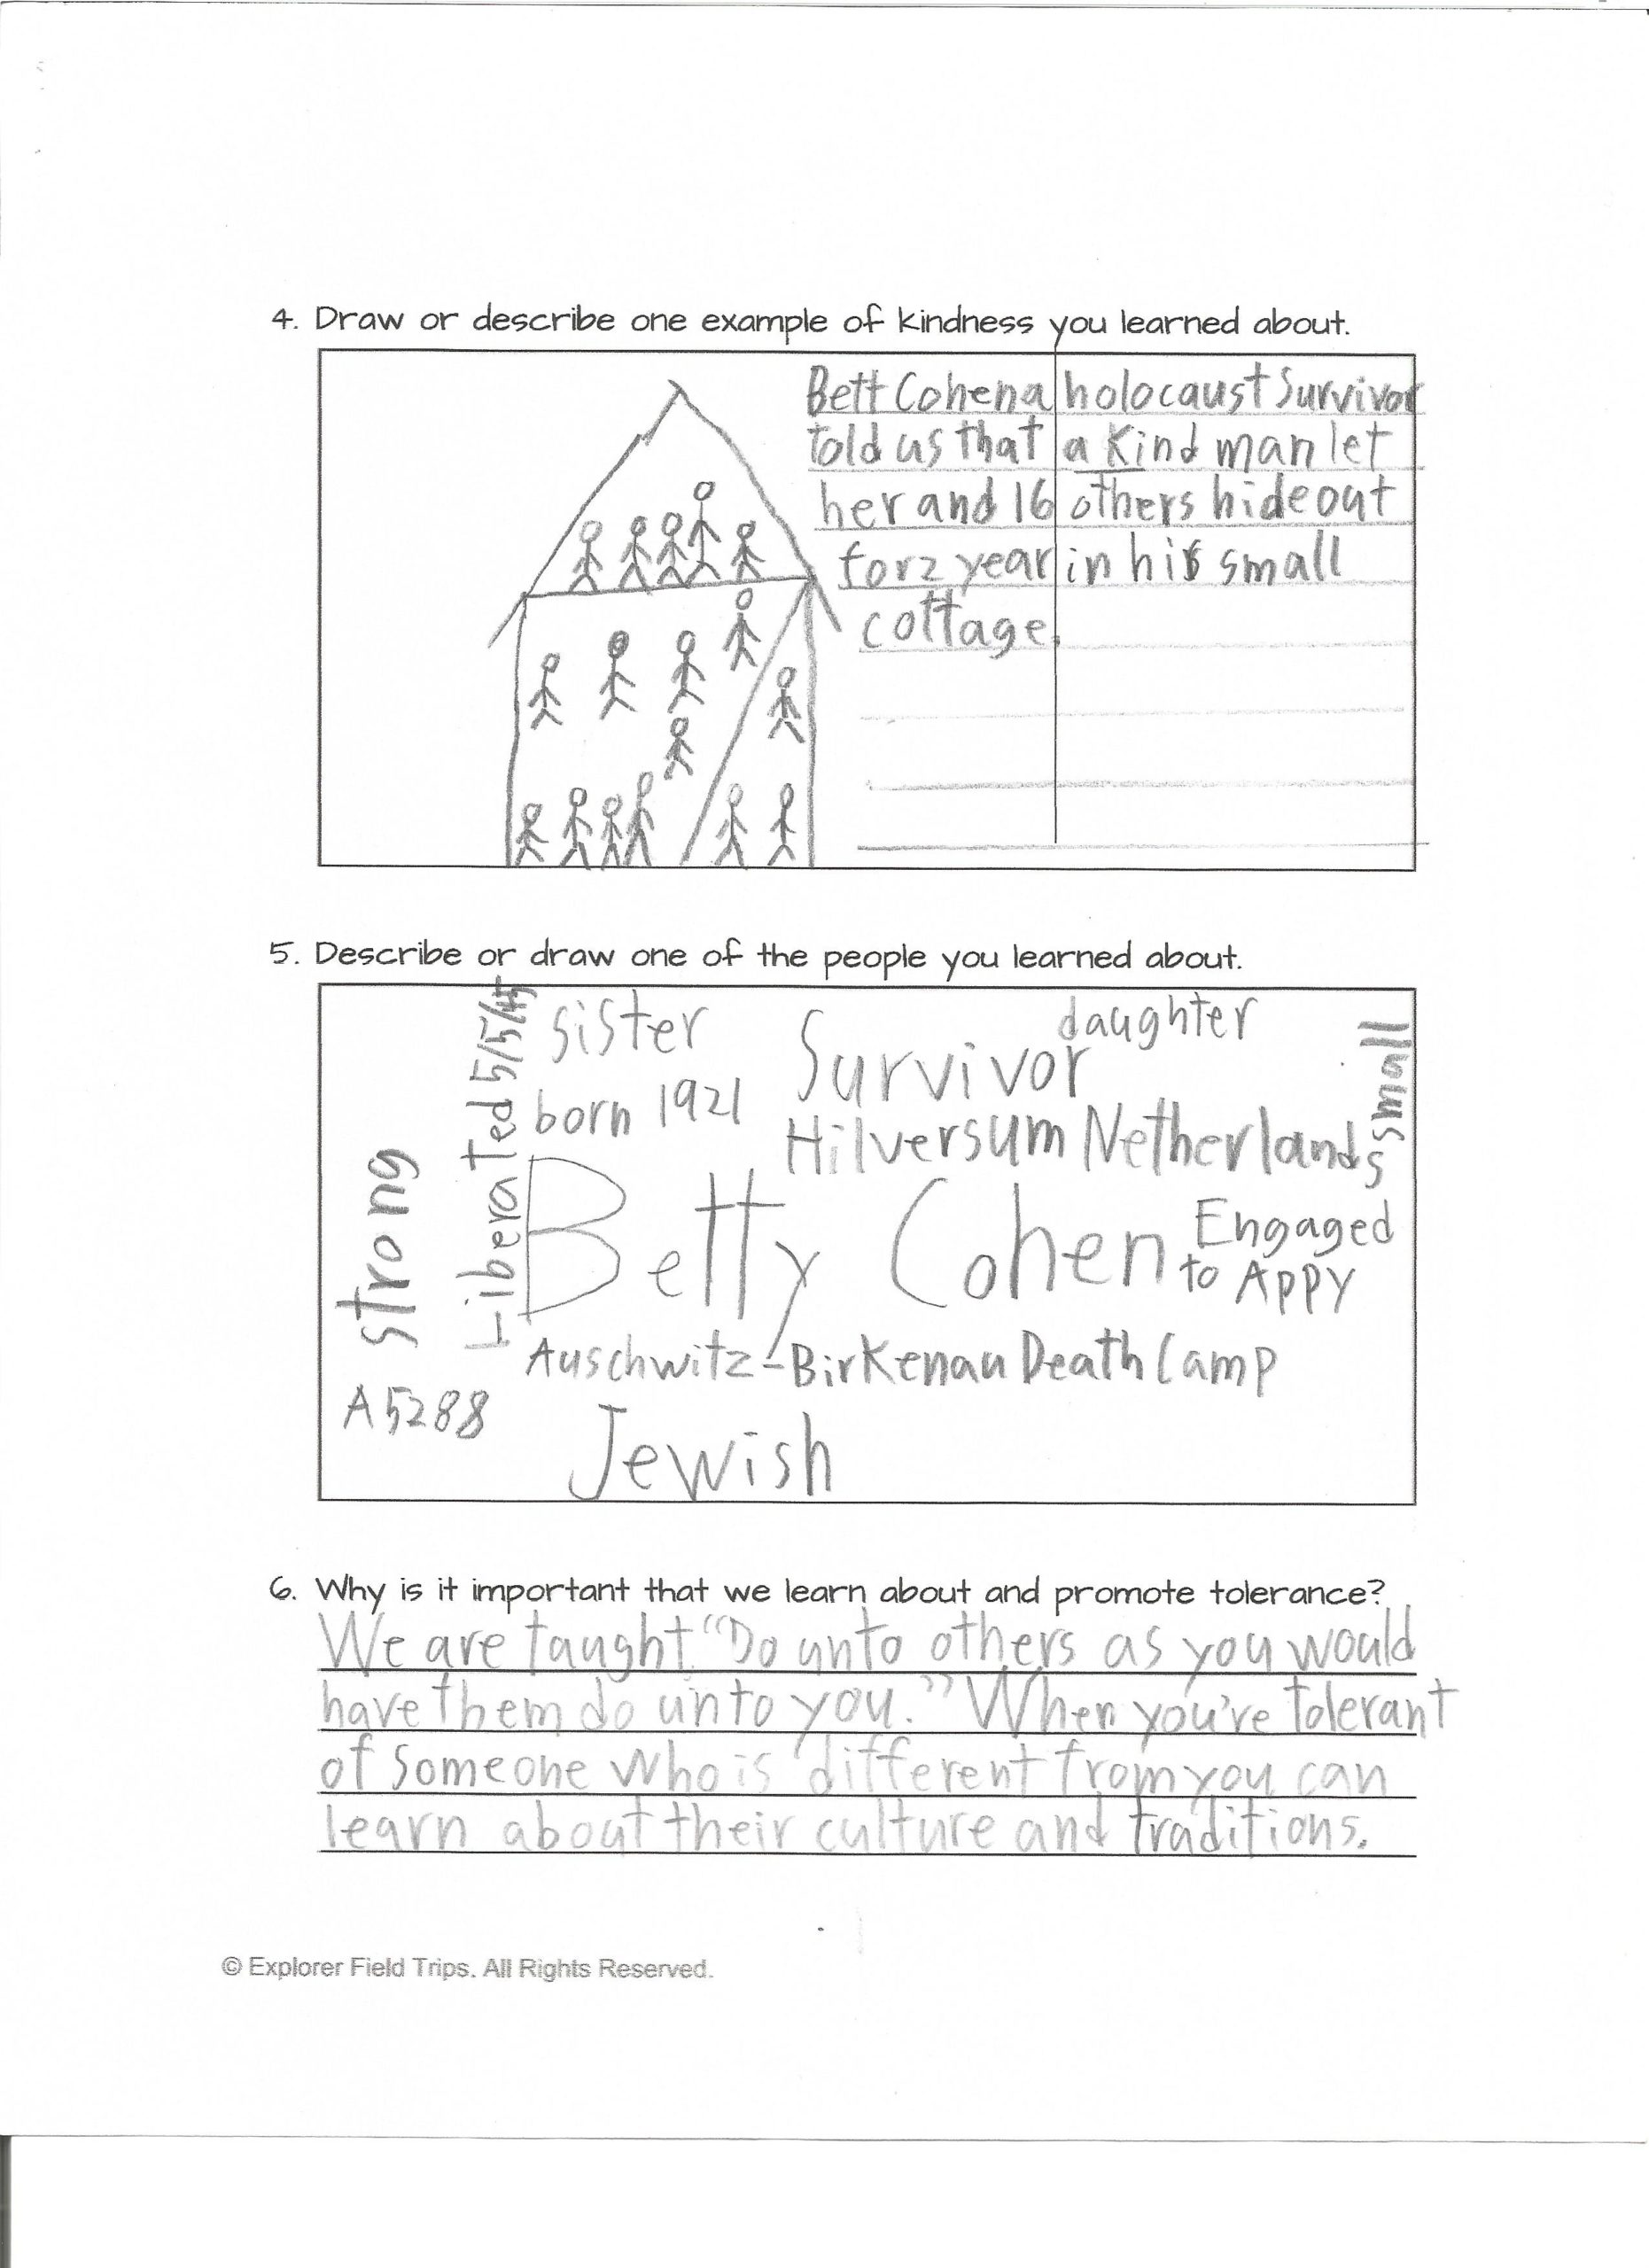 4. Draw or describe one example of kindness you learned about.
Bett Cohen a holocaust Survivor
told us that a kind man let
her and 16 others hide out
for 2 year in his small
cottage.
5. Describe or draw one of the people you learned about.
sister
daughter
Survivor
small
Liberated 5/5/45
born 1921
Hilversum Netherlands
strong
Betty Cohen
Engaged
to Appy
Auschwitz-Birkenau Death Camp
A5288
Jewish
6. Why is it important that we learn about and promote tolerance?
We are taught "Do unto others as you would
have them do unto you." When you've tolerant
of someone who is different from you can
learn about their culture and traditions.
© Explorer Field Trips. All Rights Reserved.